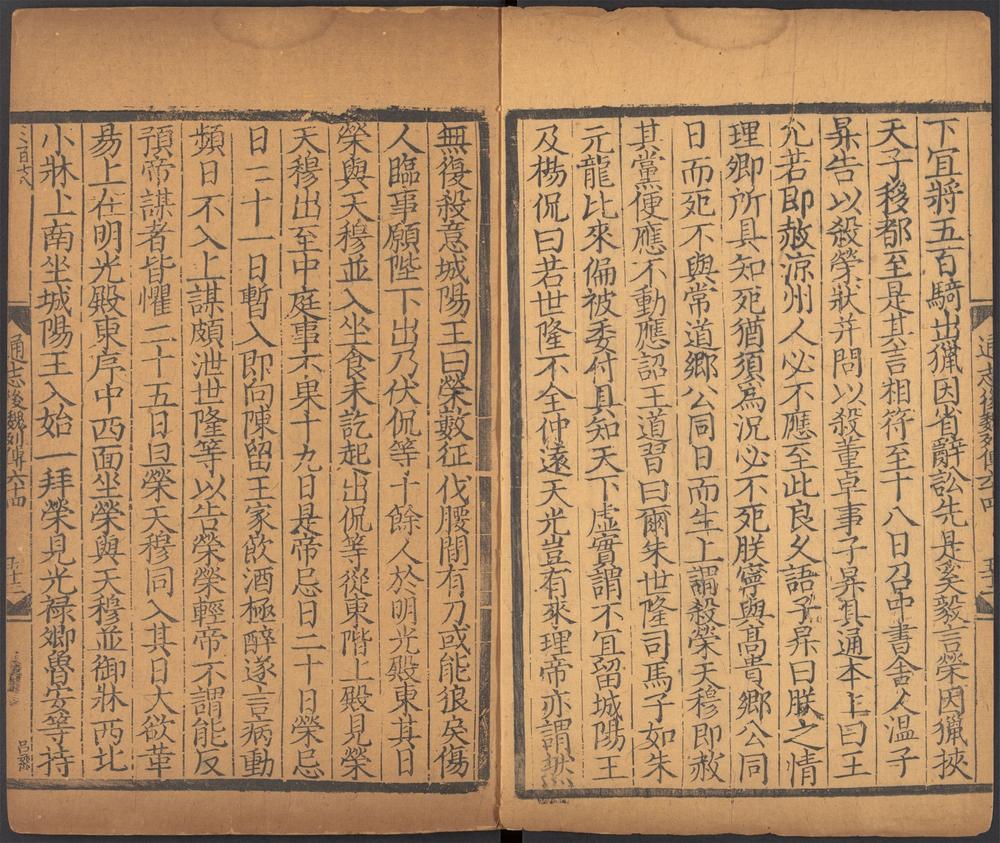 下宜將五百騎出獵因省辭訟先是奚毅言榮因獵挾
天子移都至是其言相符至十八日召中書舍人溫子
昇告以殺榮狀并問以殺董卓事子昇具通本上曰王
允若即赦涼州人必不應至此良久語子昇曰朕之情
理卿所具知死猶須爲況必不死朕寧與高貴鄉公同
日而死不與常道鄉公同日而生上謂殺榮天穆即赦
其黨便應不動應詔王道習曰爾朱世隆司馬子如朱
元龍比來偏被委付具知天下虛實謂不宜留城陽王
及楊侃曰若世隆不全仲遠天光豈有來理帝亦謂然
無復殺意城陽王曰榮數征伐腰間有刀或能狼戾傷
人臨事願陛下出乃伏侃等十餘人於明光殿東其日
榮與天穆並入坐食未訖起出侃等從東階上殿見榮
天穆出至中庭事不果十九日是帝忌日二十日榮忌
日二十一日暫入即向陳留王家飲酒極醉遂言病動
頻日不入上謀頗泄世隆等以告榮榮輕帝不謂能反
預帝謀者皆懼二十五日旦榮天穆同入其日大欲革
易上在明光殿東序中西面坐榮與天穆並御牀西北
小牀上南坐城陽王入始一拜榮見光祿卿魯安等持
三百七八
通志後魏列傳六十四